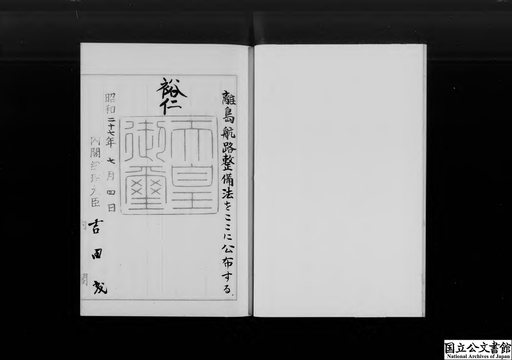 離島航路整備法をここに公布する
裕仁
天皇
御璽
昭和二十七年七月四日
内閣総理大臣
吉田茂
国立公文書館
National Archives of Japan